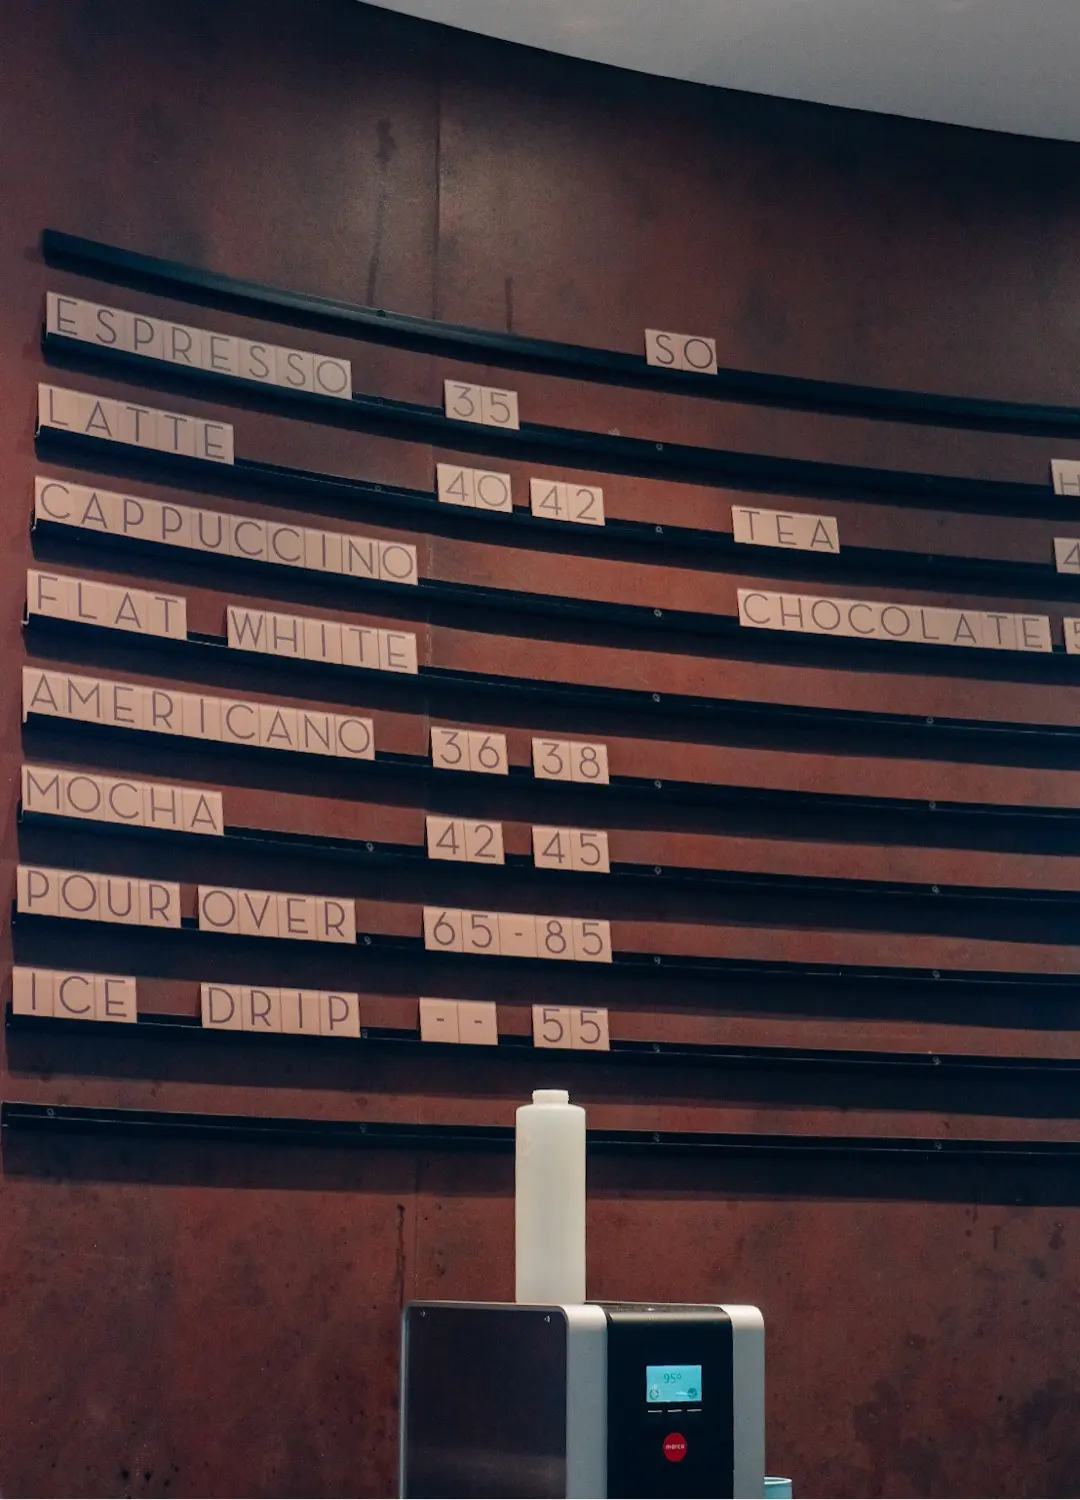 SO
ESPRESSO 35
LATTE 40 42 TEA
CAPPUCCINO CHOCOLATE
FLAT WHITE
AMERICANO 36 38
MOCHA 42 45
POUR OVER 65-85
ICE DRIP -- 55
95°
marco